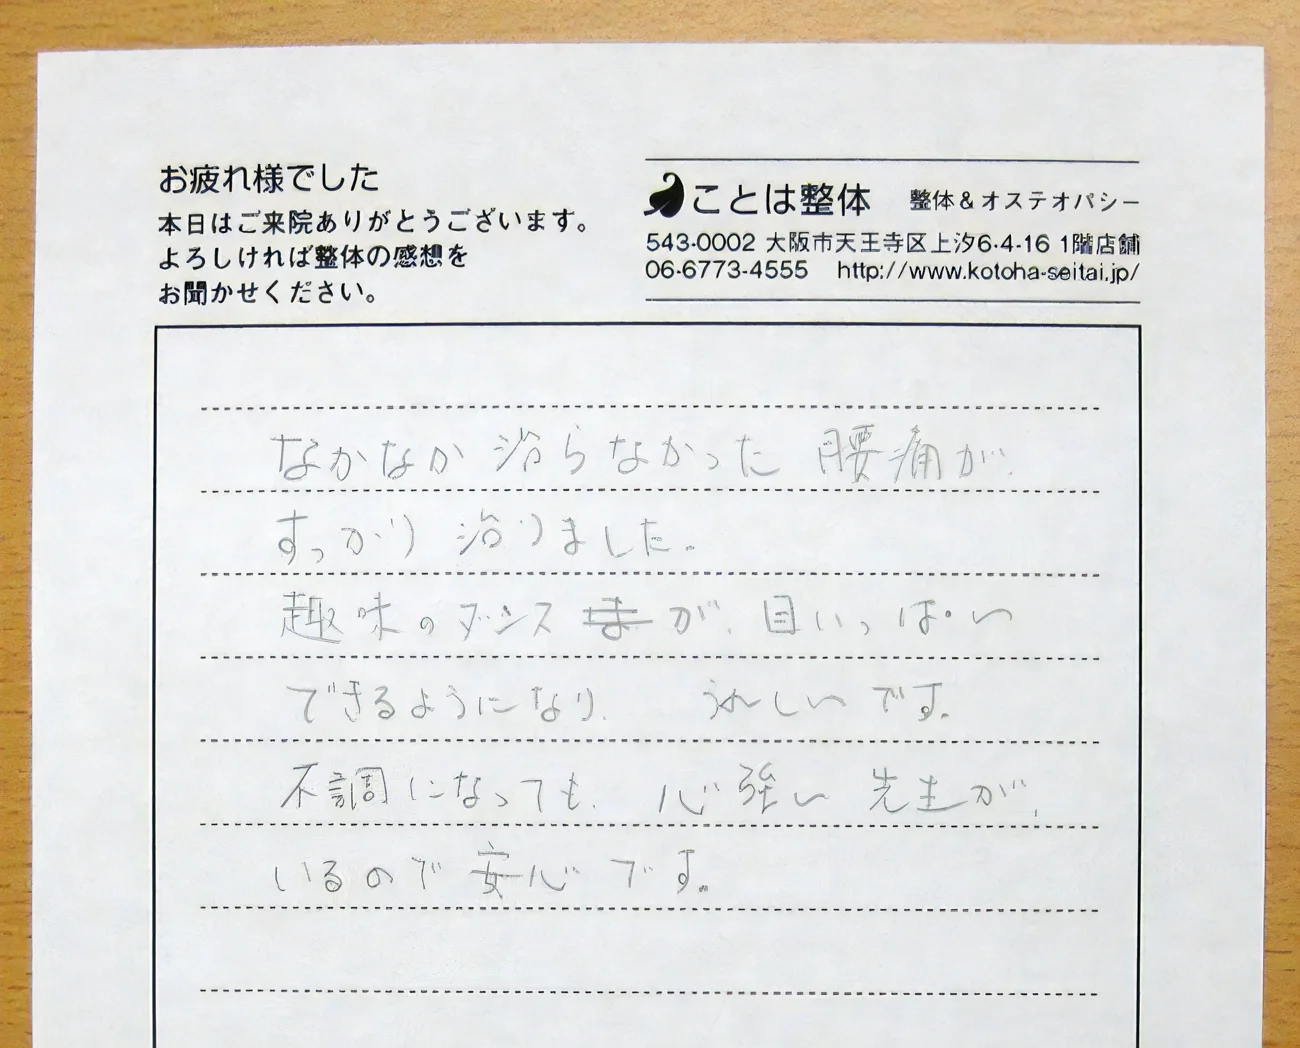 お疲れ様でした
本日はご来院ありがとうございます。
よろしければ整体の感想を
お聞かせください。
ことは整体 整体&オステオパシー
543-0002 大阪市天王寺区上汐6-4-16 1階店舗
06-6773-4555 http://www.kotoha-seitai.jp/
なかなか治らなかった 腰痛が、
すっかり 治りました。
趣味のダンス が、目いっぱい
できるようになり、 うれしいです。
不調になっても、 心強い 先生が、
いるので 安心です。